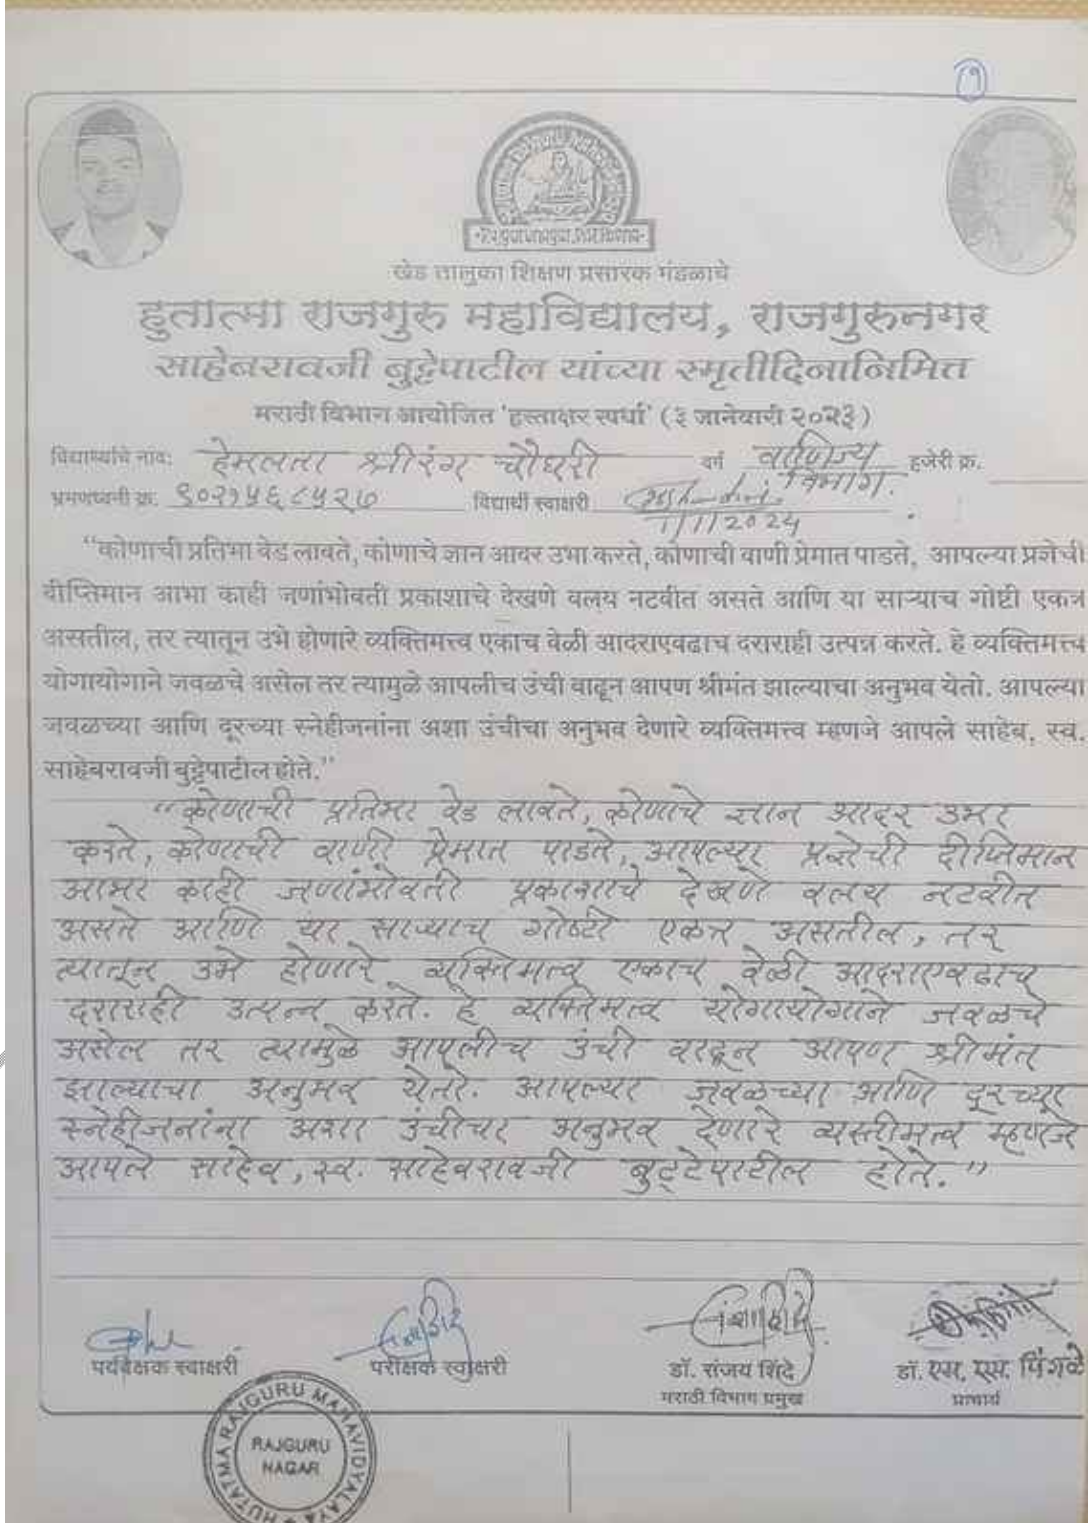 १
Rajgurunagar, Dist. Pune
खेड तालुका शिक्षण प्रसारक मंडळाचे
हुतात्मा राजगुरु महाविद्यालय, राजगुरुनगर
साहेबरावजी बुट्टेपाटील यांच्या स्मृतीदिनानिमित
मराठी विभाग आयोजित 'हस्ताक्षर स्पर्धा' (३ जानेवारी २०२३)
विद्यार्थ्याचे नाव: हेमलता श्रीरंग चौधरी वर्ग वाणिज्य विभाग. हजेरी क्र.
भ्रमणध्वनी क्र. ९०२१५६८५२७ विद्यार्थी स्वाक्षरी
1/1/2024
“कोणाची प्रतिभा वेड लावते, कोणाचे ज्ञान आदर उभा करते, कोणाची वाणी प्रेमात पाडते, आपल्या प्रज्ञेची
दीप्तिमान आभा काही जणांभोवती प्रकाशाचे देखणे वलय नटवीत असते आणि या साऱ्याच गोष्टी एकत्र
असतील, तर त्यातून उभे होणारे व्यक्तिमत्त्व एकाच वेळी आदराएवढाच दराराही उत्पन्न करते. हे व्यक्तिमत्त्व
योगायोगाने जवळचे असेल तर त्यामुळे आपलीच उंची वाढून आपण श्रीमंत झाल्याचा अनुभव येतो. आपल्या
जवळच्या आणि दूरच्या स्नेहीजनांना अशा उंचीचा अनुभव देणारे व्यक्तिमत्त्व म्हणजे आपले साहेब, स्व.
साहेबरावजी बुट्टेपाटील होते.”
“कोणाची प्रतिभा वेड लावते, कोणाचे ज्ञान आदर उभा
करते, कोणाची वाणी प्रेमात पाडते, आपल्या प्रज्ञेची दीप्तिमान
आभा काही जणांभोवती प्रकाशाचे देखणे वलय नटवीत
असते आणि या साऱ्याच गोष्टी एकत्र असतील, तर
त्यातून उभे होणारे व्यक्तिमत्व एकाच वेळी आदराएवढाच
दराराही उत्पन्न करते. हे व्यक्तिमत्व योगायोगाने जवळचे
असेल तर त्यामुळे आपलीच उंची वाढून आपण श्रीमंत
झाल्याचा अनुभव येतो. आपल्या जवळच्या आणि दूरच्या
स्नेहीजनांना अशा उंचीचा अनुभव देणारे व्यक्तीमत्व म्हणजे
आपले साहेब, स्व. साहेबरावजी बुट्टेपाटील होते.”
पर्यवेक्षक स्वाक्षरी परीक्षक स्वाक्षरी डॉ. संजय शिंदे डॉ. एस. एस. पिंगळे
मराठी विभाग प्रमुख प्राचार्य
HUTATMA RAJGURU MAHAVIDYALAYA
RAJGURU
NAGAR